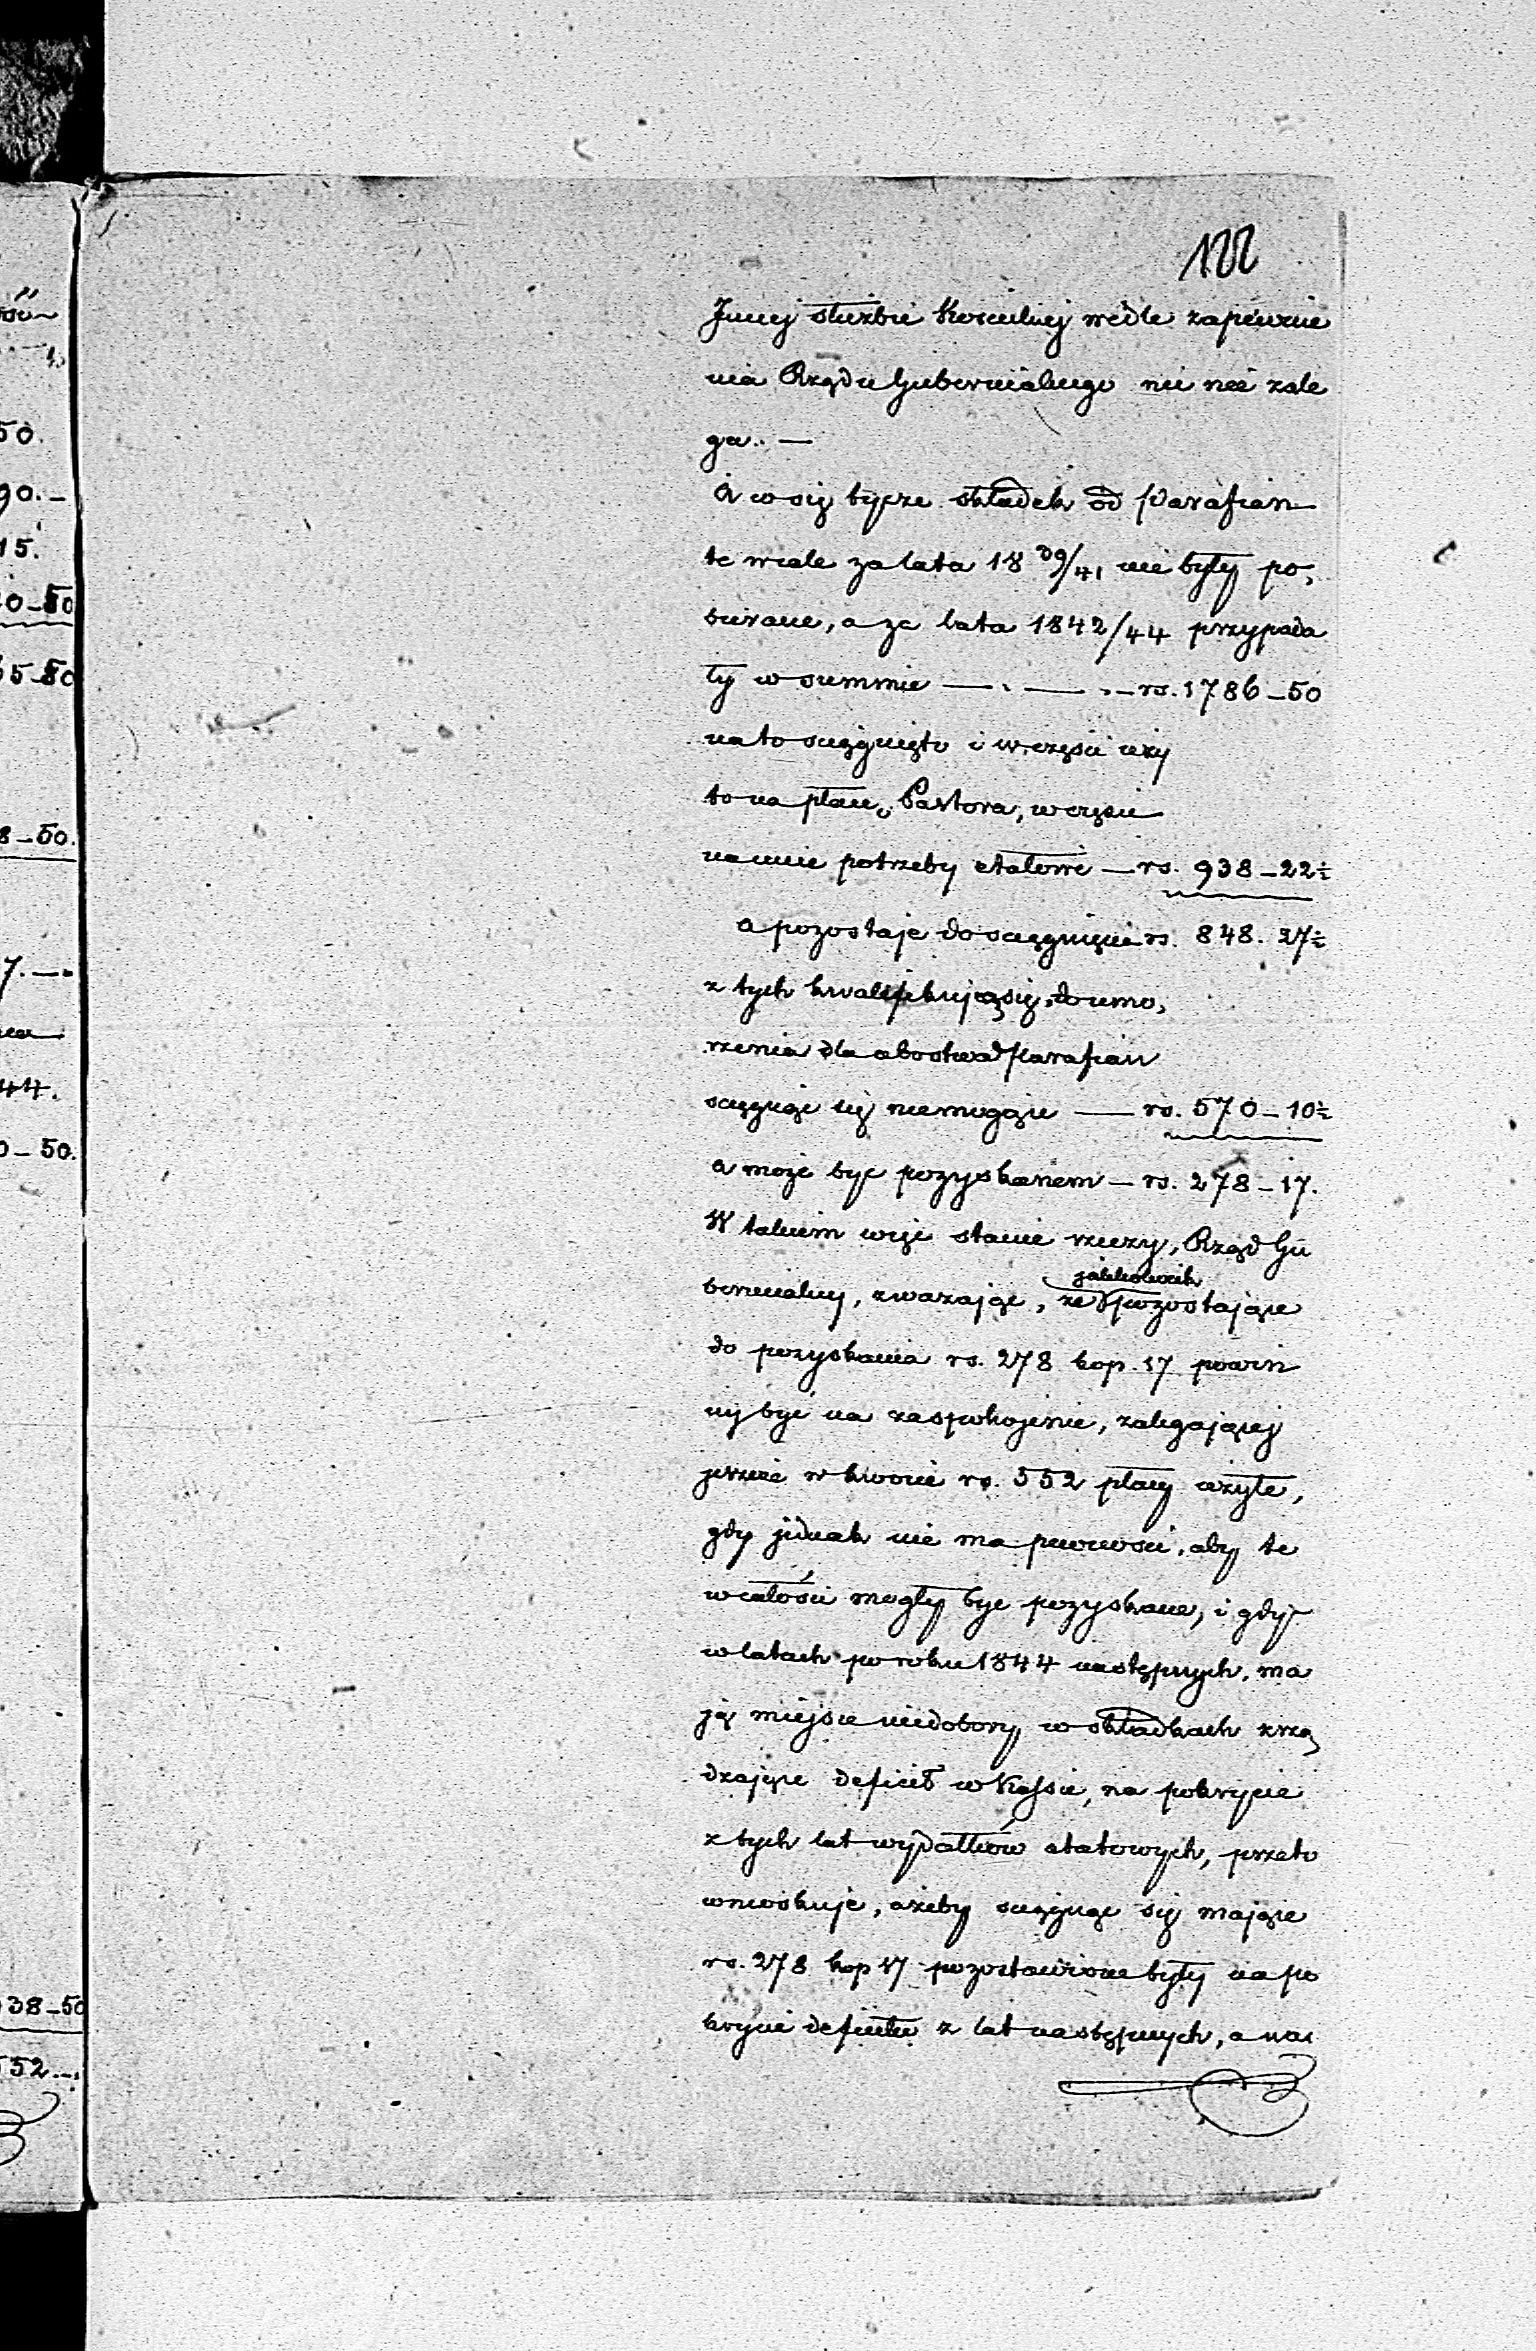 122
Innej służbie Kościelnej wedle zapewnie
nia Rządu Gubernialnego nic nie zale
ga. —
A co się tycze składek od Parafian
te wcale za lata 18 39/41 nie były po,
bierane, a za lata 1842/44 przypada
ły w summie — . — . — rs. 1786 – 50
na to ściągnięto i w części uży
to na płacę Pastora, w części
na inne potrzeby etatowe — rs. 938 – 22½
a pozostaje do ściągnięcia rs. 848. 27½
z tych kwalifikują się do umo,
rzenia dla ubóstwa Parafian
ściągnąć się niemogące — rs. 570 – 10½
a może być pozyskanem — rs. 278 – 17.
W takiem więc stanie rzeczy, Rząd Gu
jakkolwiek
bernialny, zważając, że pozostające
do pozyskania rs. 278 kop. 17 powin
ny być na zaspokojenie, zalegającej
jeszcze w kwocie rs. 552 płacy użyte,
gdy jednak nie ma pewności, aby te
w całości mogły być pozyskane, i gdy
w latach po roku 1844 następnych, ma
ją miejsce niedobory w składkach zrzą
dzające deficit w Kassie, na pokrycie
z tych lat wydatków etatowych, przeto
wnioskuje, ażeby ściągnąć się mające
rs. 278 kop 17 pozostawione były na po
krycie deficitu z lat następnych, a nas
50.
90. –
15.
0 – 50
5 – 50
8 – 50.
7. —
44.
0 – 50.
938 – 50
552. –